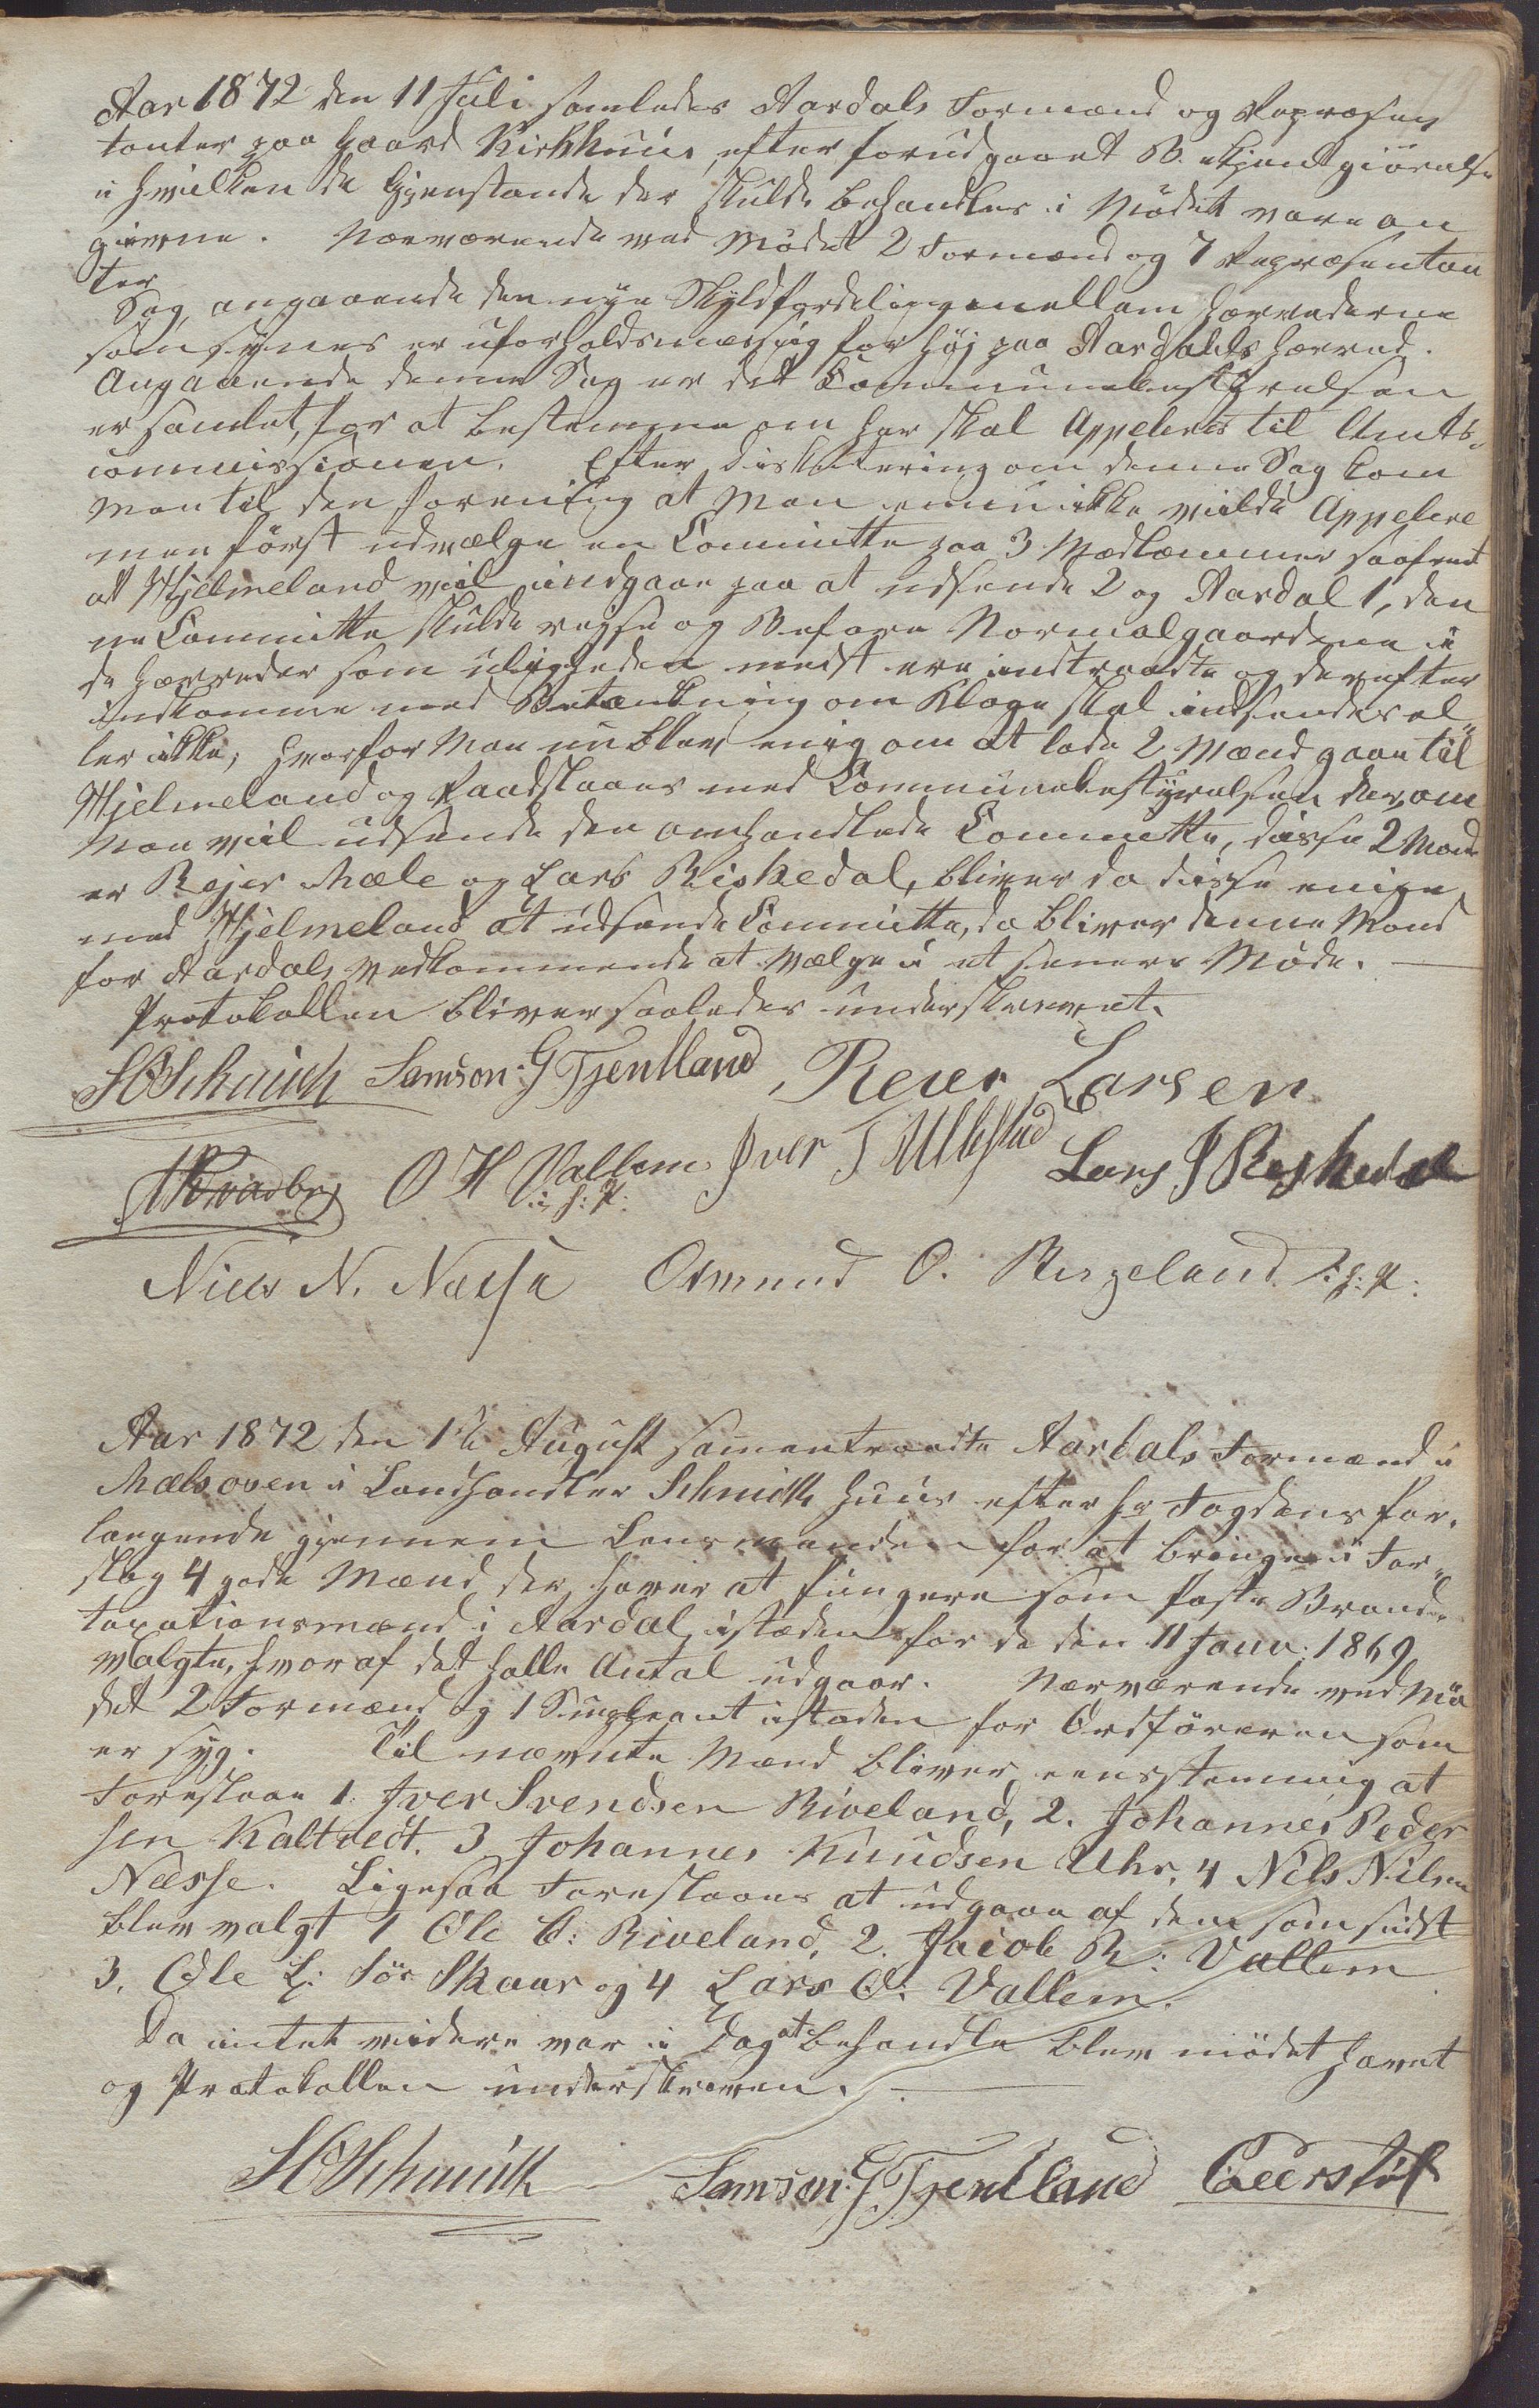 Aar 1872 den 11 Juli samledes Aardals Formænd og Repræsen
tanter paa Gaard Kirkhuus, efter forudgaaet Bekjentgiörelse
i hvilken de Gjenstande der skulde behandles i Mödet vare an
givne. Nærværende ved Mödet 2 Formænd og 7 Repræsentan
ter
Sag, angaaende den nye Skyldfordeling mellem Hærrederne
som synes er uforholdsmæssig for höj paa Aardals Hærred.
Angaaende denne Sag er det Communebestyrelsen
er samlet, for at bestemme om her skal Appeleres til Amts-
commissionen. Efter diskutering om denne Sag kom
Man til den forening at Man ennu ikke vilde Appelere
men först udvælge en Committe paa 3 Medlemmer saafremt
at Hjelmeland vil indgaae paa at udsende 2 og Aardal 1, den
ne Committe skulde rejse og Befare Normalgaardene i
de Hærreder som uligheden mest ere indtraadte og derefter
Indkomme med Betænkning om Klage skal indsendes el-
ler ikke, hvorfor Man nu blev enig om at lade 2 Mænd gaae til
Hjelmeland og Raadslaaes med Communebestyrelsen der, om
Man vil udsende den omhandlede Committe, disse 2 Mænd
er Rejer Mæle og Lars Riskedal, bliver da disse enige
med Hjelmeland at udsende Committe, da bliver denne Mand
for Aardals vedkommende at vælge i et senere Möde.
Protokollen bliver saaledes underskrevet.
HCSchmidt Samson. G Tjentland Reier Larsen
O H Vallem i. h. P. Iver T Ulstad Lars J Reskedal
Niels N. Næsse Osmund O. Bergeland i. h. P.
Aar 1872 den 1 August samentraadte Aardals Formænd i
Mælsoven i Landhandler Schmidts huus efter Hr Fogdens for-
langende gjennem Lensmanden for at bringe i For-
slag 4 gode Mænd der haver at fungere som faste Brand-
taxationsmænd i Aardal istæden for de den 11 Janv: 1869
valgte, hvoraf det halve Antal udgaar. Nærværende ved Mö
det 2 Formænd og 1 Supleant istæden for Ordföreren som
er syg. Til nævnte Mænd bliver eensstemmig at
Foreslaae 1. Iver Svendsen Riveland, 2. Johannes Peder
sen Kaltvedt. 3 Johannes Knudsen Uhr, 4 Nils Nilsen
Næsse. Ligesaa Foreslaaes at udgaae af dem som sidst
blev valgt 1 Ole O: Riveland, 2. Jacob R: Vallem
3. Ole L: Sör Skaar og 4 Lars O: Vallem.
Da intet videre var i Dag at behandle blev mödet hævet
og Protokollen underskreven.
HCSchmidt Samson. G Tjentland